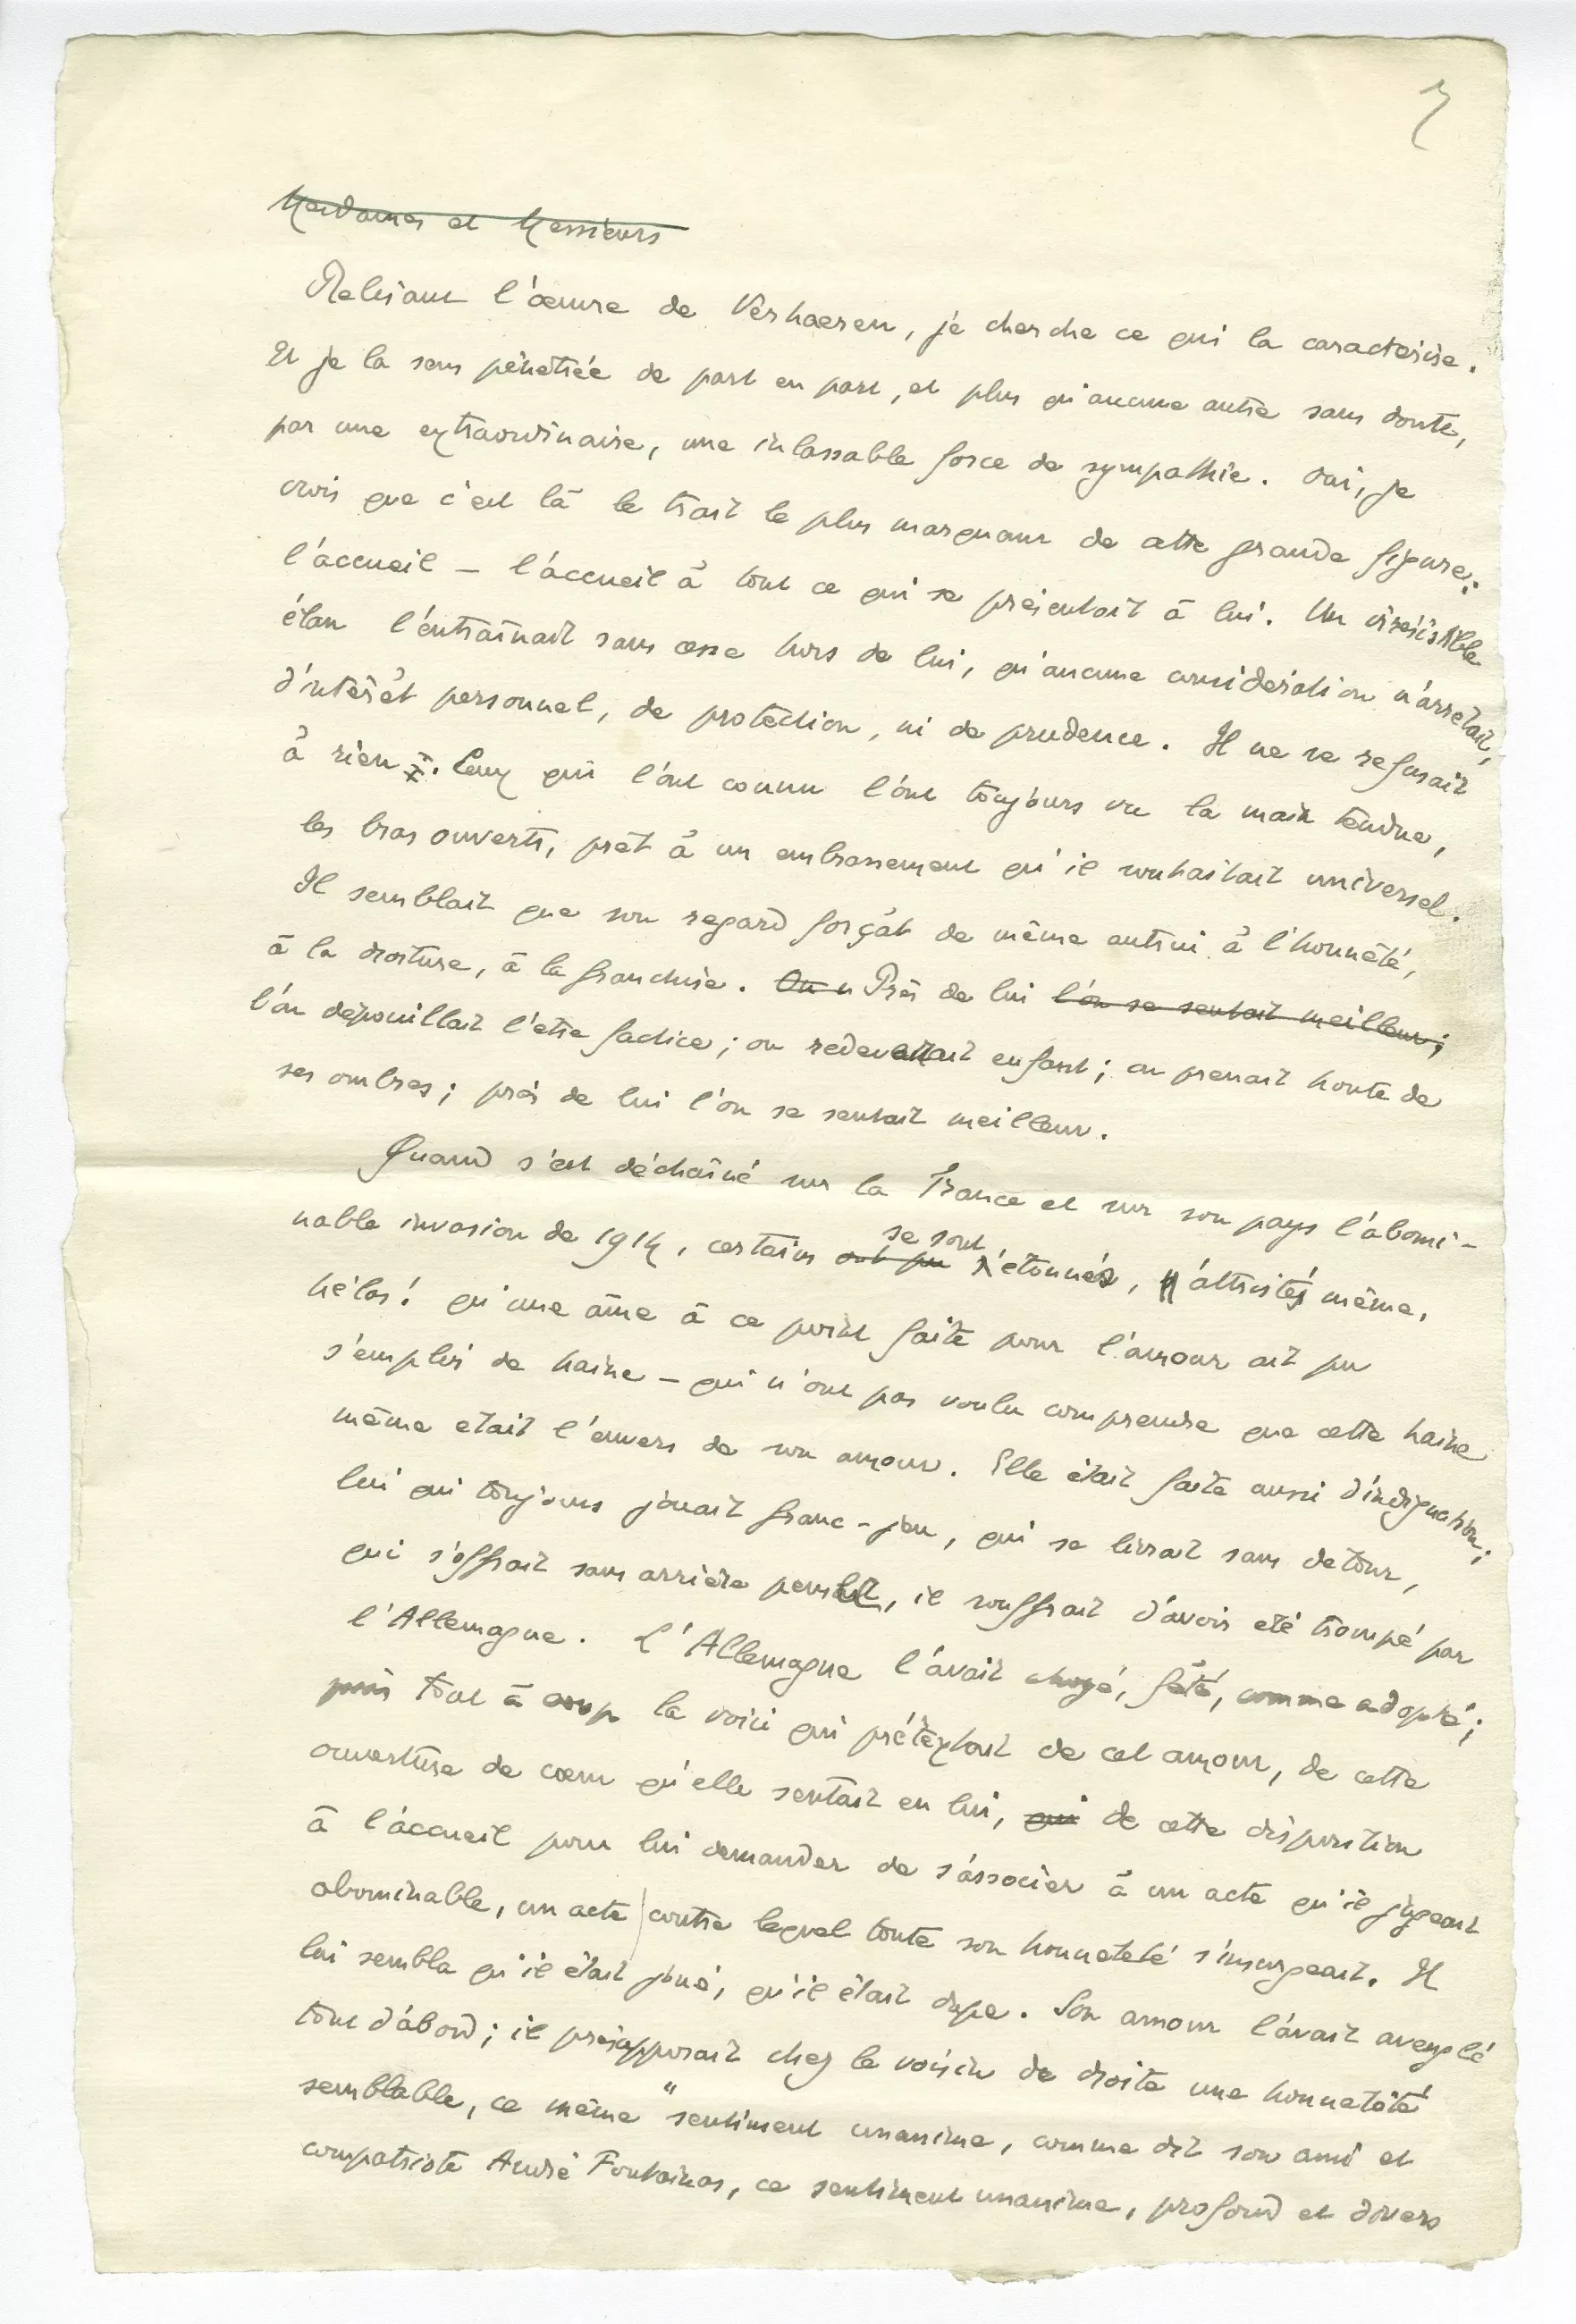 7
Mesdames et Messieurs
Relisant l'œuvre de Verhaeren, je cherche ce qui la caractérise.
Et je la sens pénétrée de part en part, et plus qu'aucune autre sans doute,
par une extraordinaire, une inlassable force de sympathie. Oui, je
crois que c'est là le trait le plus marquant de cette grande figure:
l'accueil – l'accueil à tout ce qui se présentait à lui. Un irrésistible
élan l'entraînait sans cesse hors de lui, qu'aucune considération n'arrêtait,
d'intérêt personnel, de protection, ni de prudence. Il ne se refusait
à rien. Ceux qui l'ont connu l'ont toujours vu la main tendue,
les bras ouverts, prêt à un embrassement qu'il souhaitait universel.
Il semblait que son regard forçât de même autrui à l'honnêté,
à la droiture, à la franchise. On n Près de lui l'on se sentait meilleur;
l'on dépouillait l'être factice; on redevenait enfant; on prenait honte de
ses ombres; près de lui l'on se sentait meilleur.
Quand s'est déchaîné sur la France et sur son pays l'abomi-
nable invasion de 1914, certains ont pu se sont étonnés, attristés même,
hélas! qu'une âme à ce point faite pour l'amour ait pu
s'emplir de haine – qui n'ont pas voulu comprendre que cette haine
même etait l'envers de son amour. Elle était faite aussi d'indignation;
lui qui toujours jouait franc-jeu, qui se livrait sans detour,
qui s'offrait sans arrière pensée, il souffrait d'avoir eté trompé par
l'Allemagne. L'Allemagne l'avait choyé, fêté, comme adopté;
puis tout à coup la voici qui prétextait de cet amour, de cette
ouverture de cœur qu'elle sentait en lui, qui de cette disposition
à l'accueil pour lui demander de s'associer à un acte qu'il jugeait
abominable, un acte contre lequel toute son honneteté s'insurgeait. Il
lui sembla qu'il était joué, qu'il était dupe. Son amour l'avait aveuglé
tout d'abord; il présupposait chez le voisin de droite une honnêteté
semblable, ce même "sentiment unanime, comme dit son ami et
compatriote André Fontainas, ce sentiment unanime, profond et divers